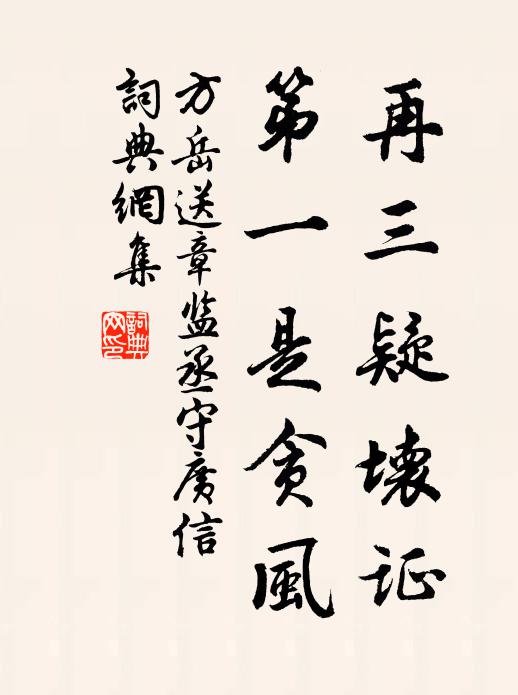 再三疑壞证
第一是贪風
方岳送章监丞守廣信
詞典網集
詞典網印